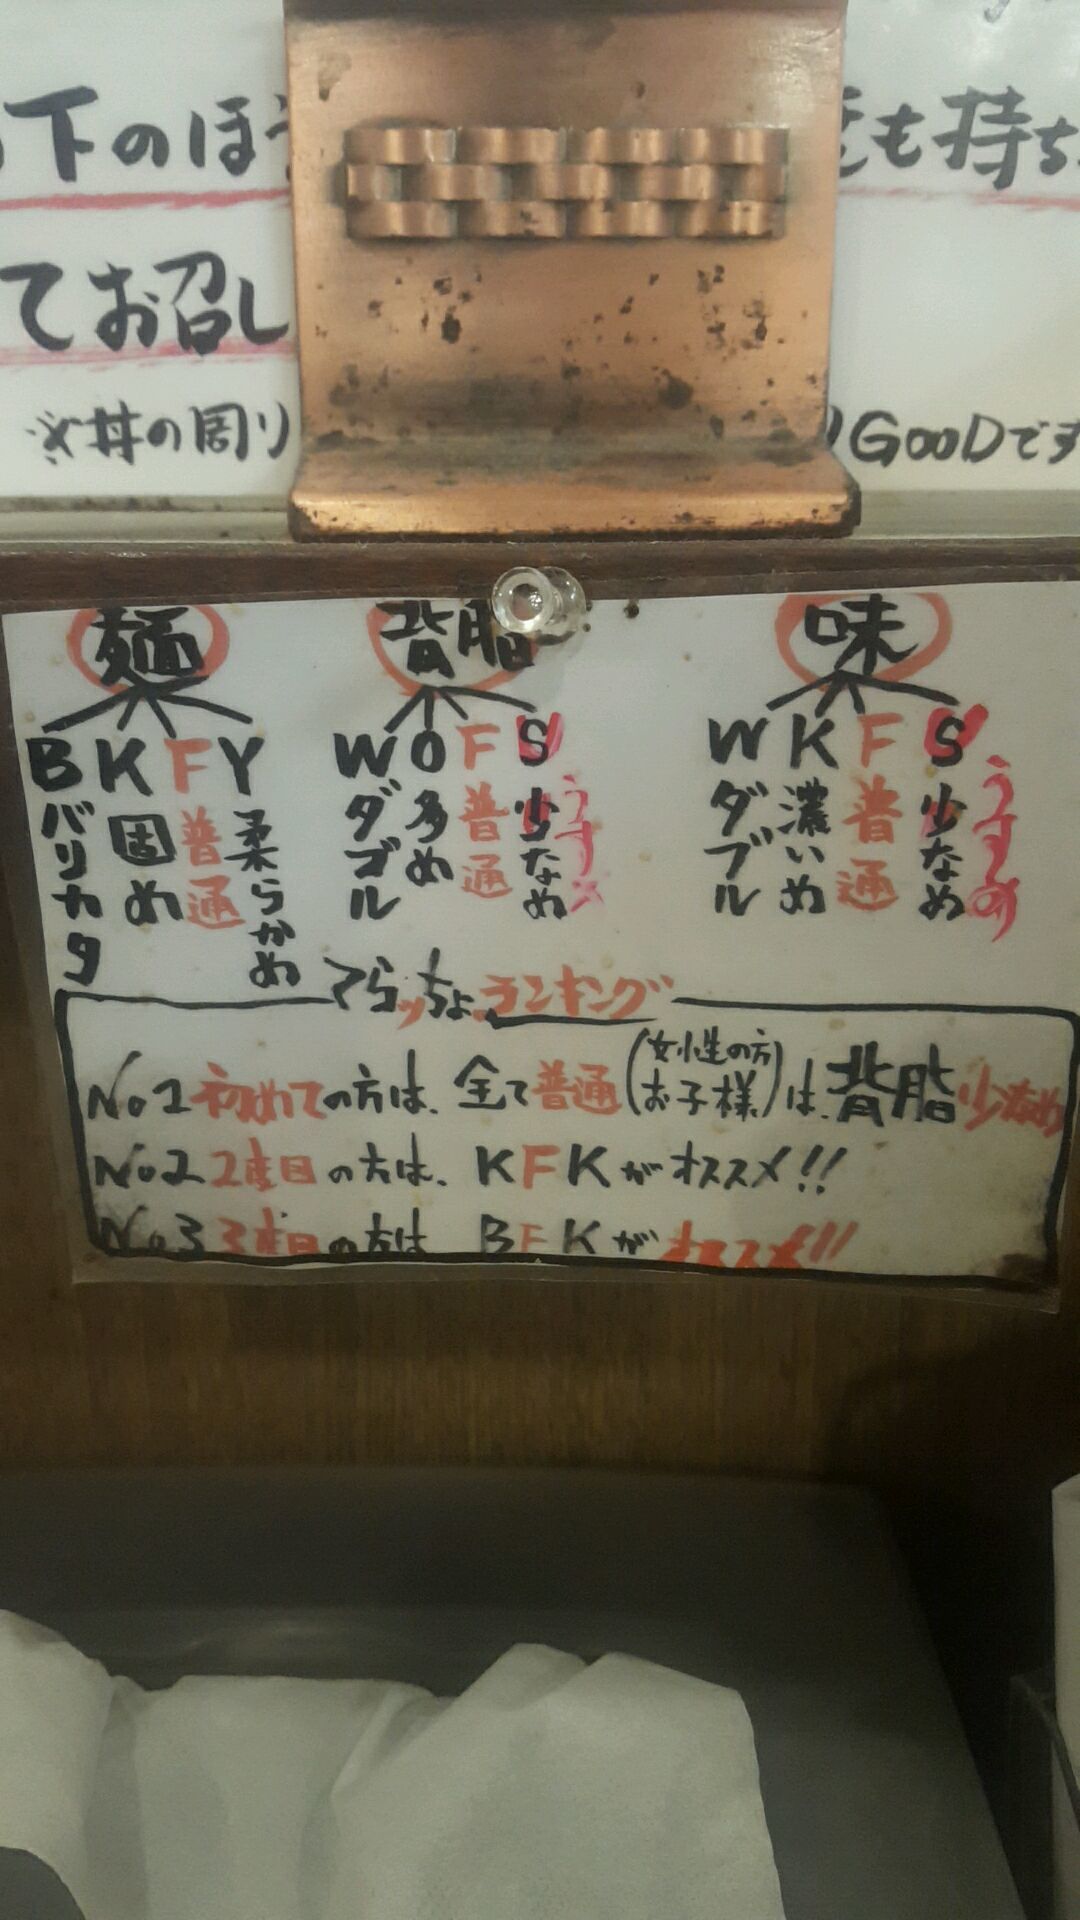 下のほ
も持ち
てお召し
※丼の周り
GOODです
麺
背脂
味
B バリカタ
K 固め
F 普通
Y 柔らかめ
W ダブル
O 多め
F 普通
S 少なめ
うすめ
W ダブル
K 濃いめ
F 普通
S 少なめ
うすめ
てらッちょ。ランキング
No1 初めての方は、全て普通(女性の方 お子様)は、背脂少なめ
No2 2度目の方は、KFKがオススメ!!
No3 3度目の方は BFKがオススメ!!